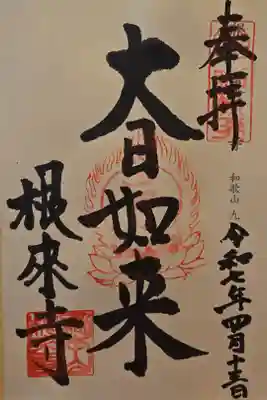 奉拝
和歌山 九
令和七年四月十三日
大日如来
根來寺